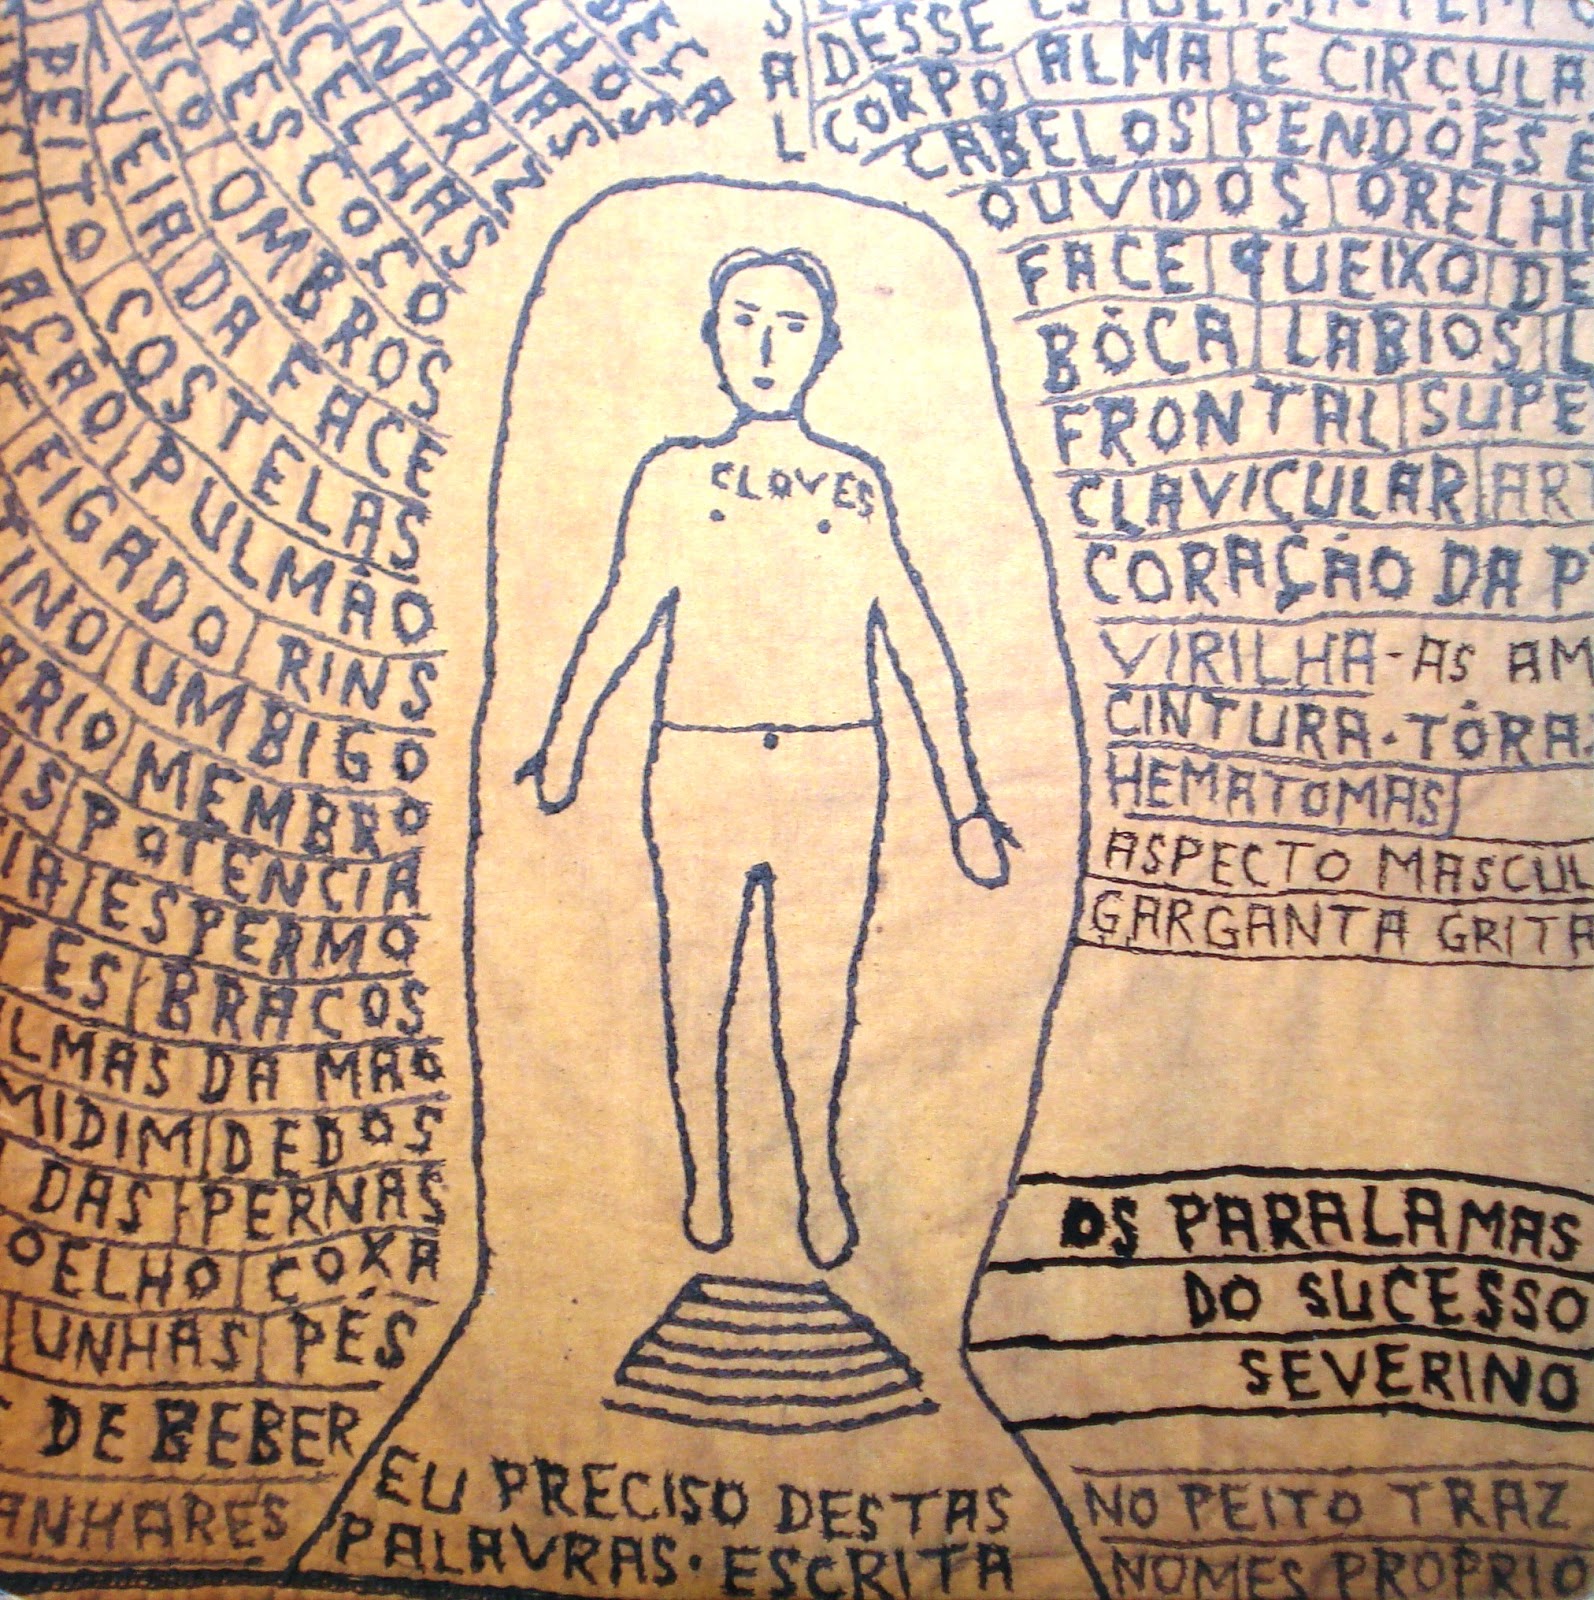 BEÇA
LHOS
ANAS
NARIZ
NCELHAS
PESCOÇO
NCO OMBROS
VEIA DA FACE
PEITO COSTELAS
AÇÃO PULMÃO
FIGADO RINS
TINO UMBIGO
RIO MEMBRO
IS POTENCIA
IA ESPERMO
TES BRACOS
LMAS DA MÃO
MIDIM DEDOS
DAS PERNAS
OELHO COXA
UNHAS PÉS
DE BEBER
ANHARES
SAL
DESSE
CORPO ALMA E CIRCULA
CABELOS PENDÕES E
OUVIDOS ORELHE
FACE QUEIXO DE
BÔCA LABIOS L
FRONTAL SUPE
CLAVIÇULAR ART
CORAÇÃO DA P
VIRILHA - AS AM
CINTURA. TÓRA
HEMATOMAS
ASPECTO MASCUL
GARGANTA GRITA
CLOVES
OS PARALAMAS
DO SUCESSO
SEVERINO
EU PRECISO DESTAS
PALAVRAS. ESCRITA
NO PEITO TRAZ
NOMES PROPRIO